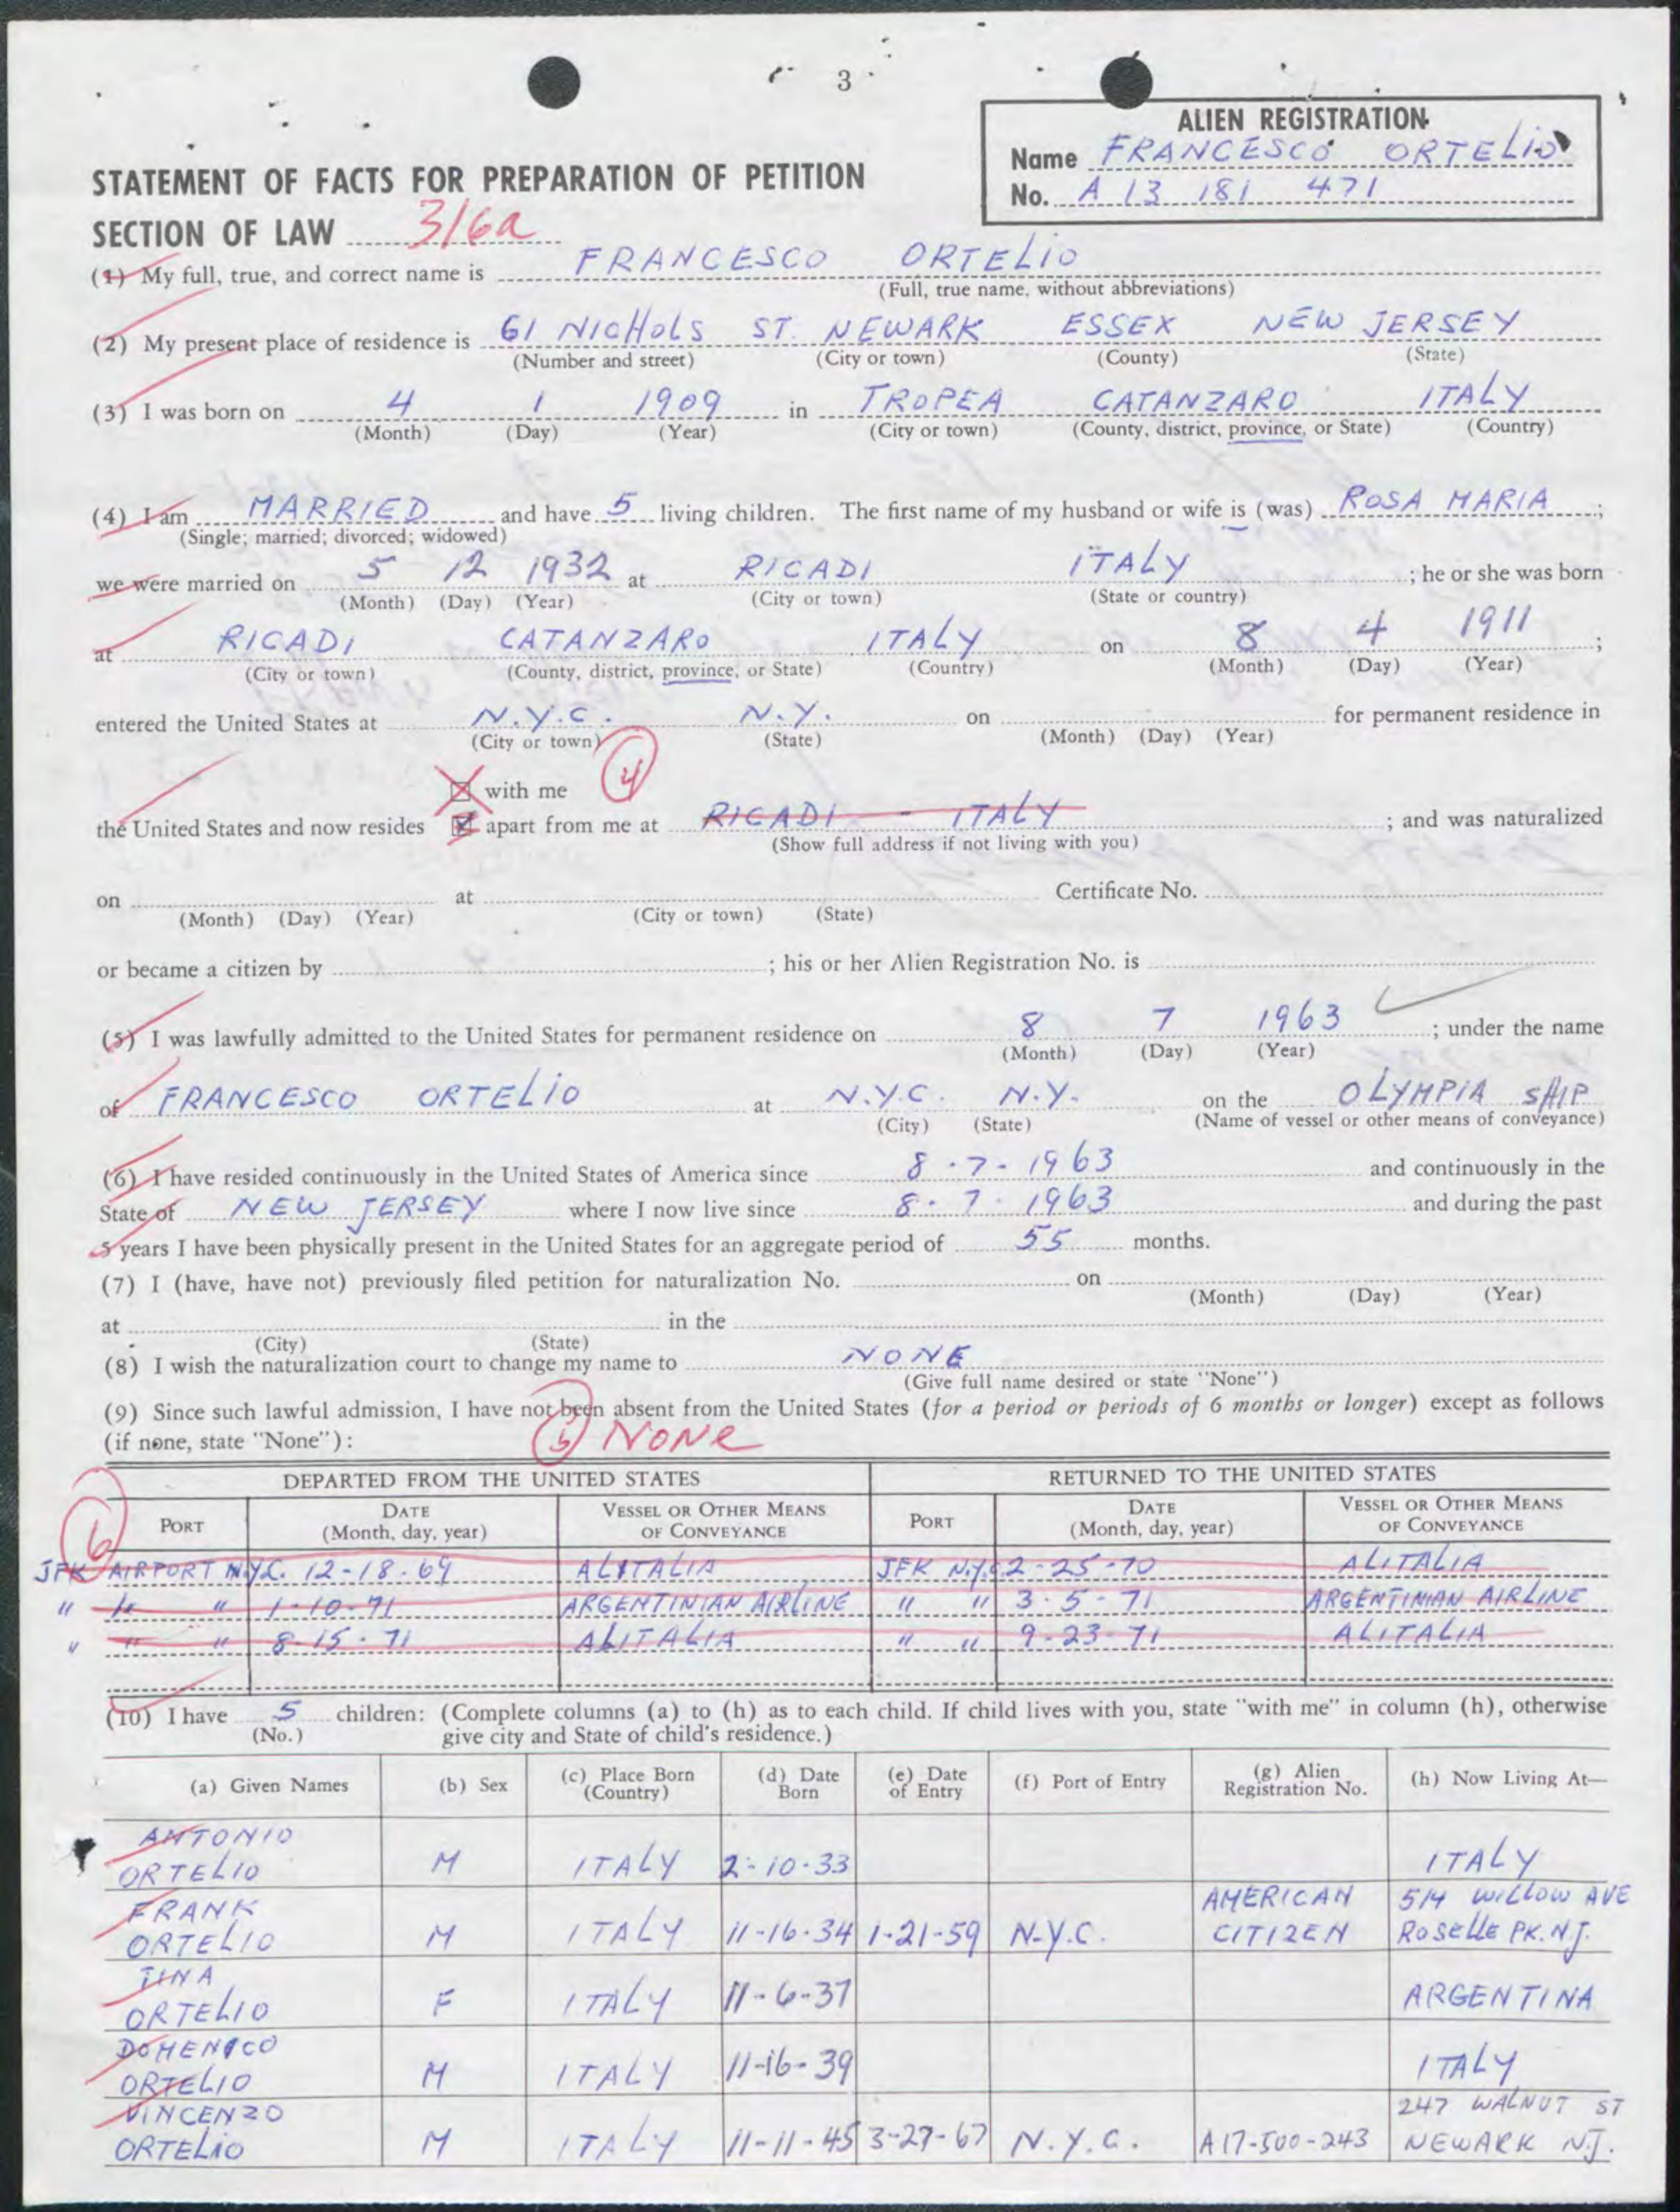 3
ALIEN REGISTRATION
Name FRANCESCO ORTELIO
No. A 13 181 471
STATEMENT OF FACTS FOR PREPARATION OF PETITION
SECTION OF LAW 316a
(1) My full, true, and correct name is FRANCESCO ORTELIO
(Full, true name, without abbreviations)
(2) My present place of residence is 61 NICHOLS ST. NEWARK ESSEX NEW JERSEY
(Number and street) (City or town) (County) (State)
(3) I was born on 4 1 1909 in TROPEA CATANZARO ITALY
(Month) (Day) (Year) (City or town) (County, district, province, or State) (Country)
(4) I am MARRIED and have 5 living children. The first name of my husband or wife is (was) ROSA MARIA ;
(Single; married; divorced; widowed)
we were married on 5 12 1932 at RICADI ITALY ; he or she was born
(Month) (Day) (Year) (City or town) (State or country)
at RICADI CATANZARO ITALY on 8 4 1911 ;
(City or town) (County, district, province, or State) (Country) (Month) (Day) (Year)
entered the United States at N.Y.C. N.Y. on for permanent residence in
(City or town) (State) (Month) (Day) (Year)
with me 4
the United States and now resides apart from me at RICADI - ITALY ; and was naturalized
(Show full address if not living with you)
on at Certificate No.
(Month) (Day) (Year) (City or town) (State)
or became a citizen by ; his or her Alien Registration No. is
(5) I was lawfully admitted to the United States for permanent residence on 8 7 1963 ; under the name
(Month) (Day) (Year)
of FRANCESCO ORTELIO at N.Y.C. N.Y. on the OLYMPIA SHIP
(City) (State) (Name of vessel or other means of conveyance)
(6) I have resided continuously in the United States of America since 8-7-1963 and continuously in the
State of NEW JERSEY where I now live since 8-7-1963 and during the past
5 years I have been physically present in the United States for an aggregate period of 55 months.
(7) I (have, have not) previously filed petition for naturalization No. on
(Month) (Day) (Year)
at in the
(City) (State)
(8) I wish the naturalization court to change my name to NONE
(Give full name desired or state "None")
(9) Since such lawful admission, I have not been absent from the United States (for a period or periods of 6 months or longer) except as follows
(if none, state "None"): 5 NONE
DEPARTED FROM THE UNITED STATES RETURNED TO THE UNITED STATES
PORT DATE (Month, day, year) VESSEL OR OTHER MEANS OF CONVEYANCE PORT DATE (Month, day, year) VESSEL OR OTHER MEANS OF CONVEYANCE
6
JFK AIRPORT N.Y.C. 12-18-69 ALITALIA JFK N.Y.C 2-25-70 ALITALIA
" " " 1-10-71 ARGENTINIAN AIRLINE " " 3-5-71 ARGENTINIAN AIRLINE
" " " 8-15-71 ALITALIA " " 9-23-71 ALITALIA
(10) I have 5 children: (Complete columns (a) to (h) as to each child. If child lives with you, state "with me" in column (h), otherwise
(No.) give city and State of child's residence.)
(a) Given Names (b) Sex (c) Place Born (Country) (d) Date Born (e) Date of Entry (f) Port of Entry (g) Alien Registration No. (h) Now Living At—
ANTONIO
ORTELIO M ITALY 2-10-33 ITALY
FRANK AMERICAN 514 WILLOW AVE
ORTELIO M ITALY 11-16-34 1-21-59 N.Y.C. CITIZEN ROSELLE PK. N.J.
TINA
ORTELIO F ITALY 11-6-37 ARGENTINA
DOMENICO
ORTELIO M ITALY 11-16-39 ITALY
VINCENZO 247 WALNUT ST
ORTELIO M ITALY 11-11-45 3-27-67 N.Y.C. A17-500-243 NEWARK N.J.